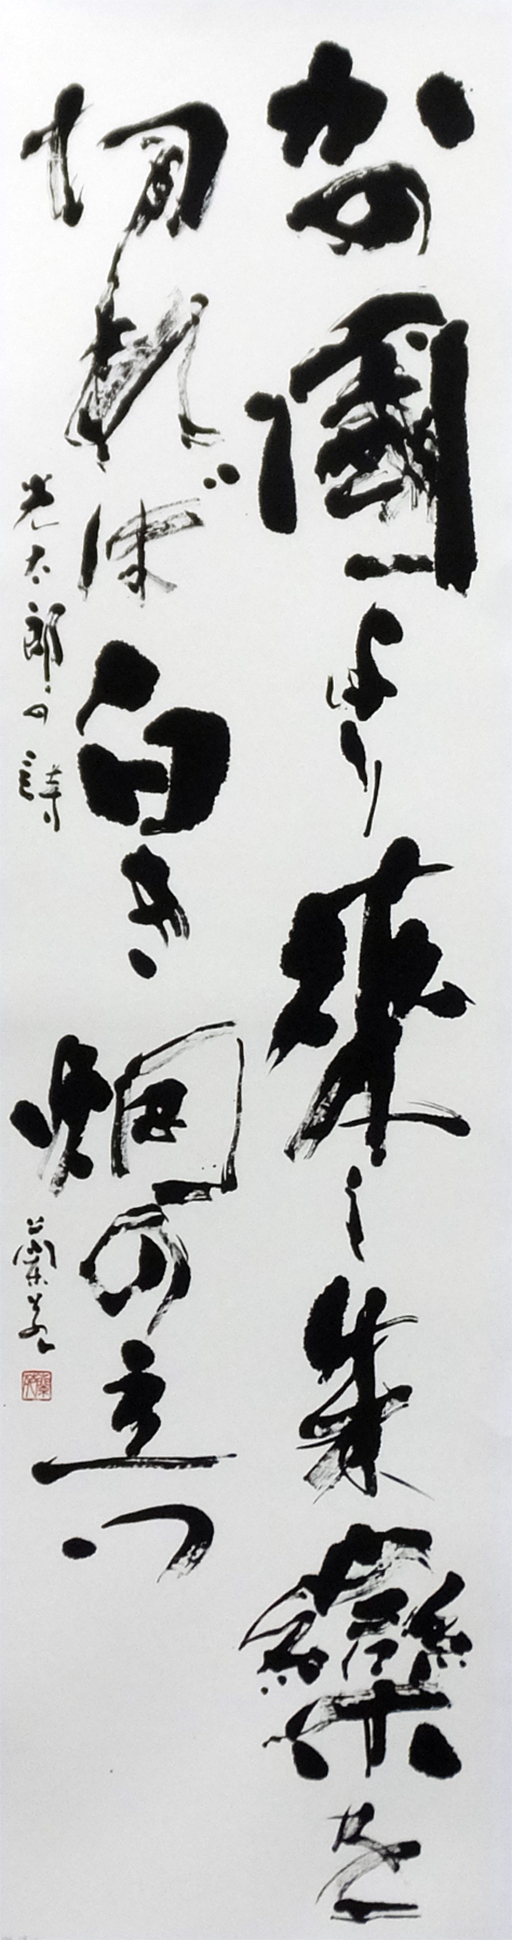 かの國より來し朱欒を
切れば白き烟の立つ
光太郎の詩
蘭